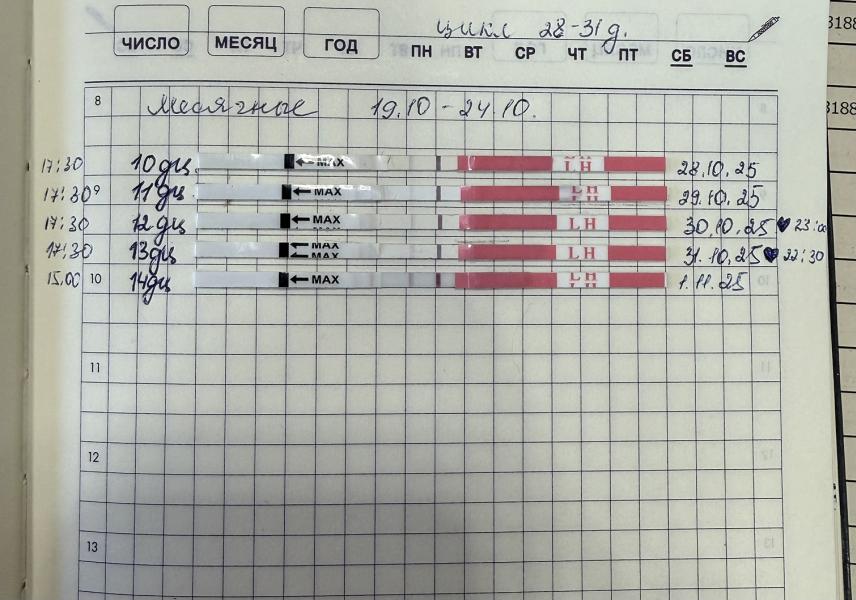 цикл 28-31д.
ЧИСЛО МЕСЯЦ ГОД ПН ВТ СР ЧТ ПТ СБ ВС
3188
8 Месячные 19.10 - 24.10.
3188
17:30 10дц. ← MAX LH 28.10.25
17:30 9 11дц ← MAX LH 29.10.25
17:30 12дц ← MAX LH 30.10.25 ♥ 23:00
17:30 13дц ← MAX LH 31.10.25 ♥ 22:30
15.00 10 14дц ← MAX LH 1.11.25
11
12
13